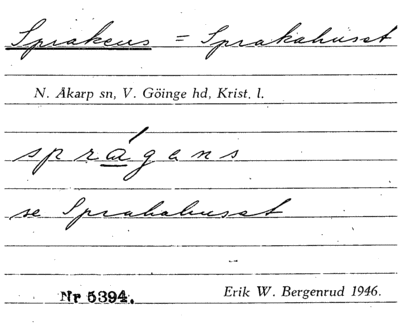 Sprakens = Sprakahuset
N. Åkarp sn, V. Göinge hd, Krist. l.
sprágens
se Sprakahuset
Nr 5394.
Erik W. Bergenrud 1946.